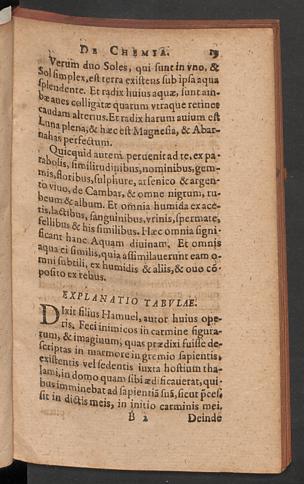 DE CHEMIA. 19
Verum duo Soles, qui sunt in vno, &
Sol simplex, est terra existens sub ipsa aqua
splendente. Et radix huius aquæ, sunt am-
bæ aues colligatæ quarum vtraque retinet
caudam alterius. Et radix harum auium est
Luna plena, & hæc est Magnesia, & Abar-
nahas perfectum.
Quicquid autem peruenit ad te, ex pa-
rabolis, similitudinibus, nominibus, gem-
mis, floribus, sulphure, arsenico & argen-
to viuo, de Cambar, & omne nigrum, ru-
beum & album. Et omnia humida ex ace-
tis, lactibus, sanguinibus, vrinis, spermate,
fellibus & his similibus. Hæc omnia signi-
ficant hanc Aquam diuinam. Et omnis
aqua ei similis, quia assimilauerunt eam o-
mni subtili, ex humidis & aliis, & ouo cō-
posito ex rebus.
EXPLANATIO TABVLAE.
DIxit filius Hamuel, autor huius ope-
ris. Feci inimicos in carmine figura-
rum, & imaginum, quas prædixi fuisse de-
scriptas in marmore in gremio sapientis,
existentis vel sedentis iuxta hostium tha-
lami, in domo quam sibi ædificauerat, qui-
bus imminebat ad sapientiā suā, sicut p̄ces-
sit in dictis meis, in initio carminis mei.
B 2 Deinde